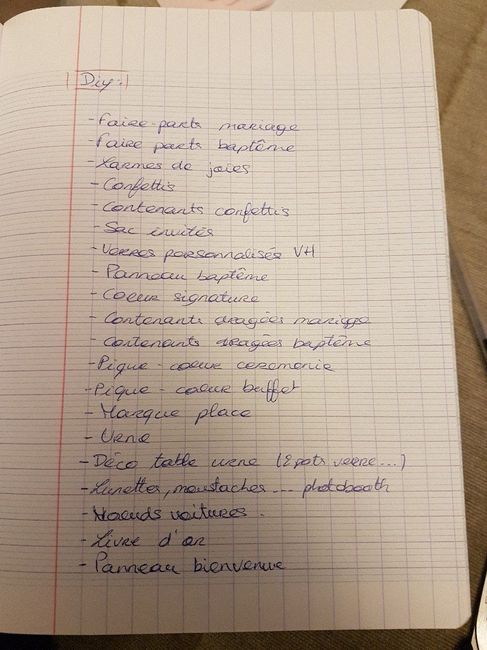 Diy :
- Faire-parts mariage
- Faire parts baptême
- Larmes de joies
- Confettis
- Contenants confettis
- Sac invités
- Verres personnalisés VH
- Panneau baptême
- Coeur signature
- Contenants dragées mariage
- Contenants dragées baptême
- Pique-coeur ceremonie
- Pique-coeur buffet
- Marque place
- Urne
- Déco table urne (2 pots verre...)
- Lunettes, moustaches ... photobooth
- Noeuds voitures.
- Livre d'or
- Panneau bienvenue